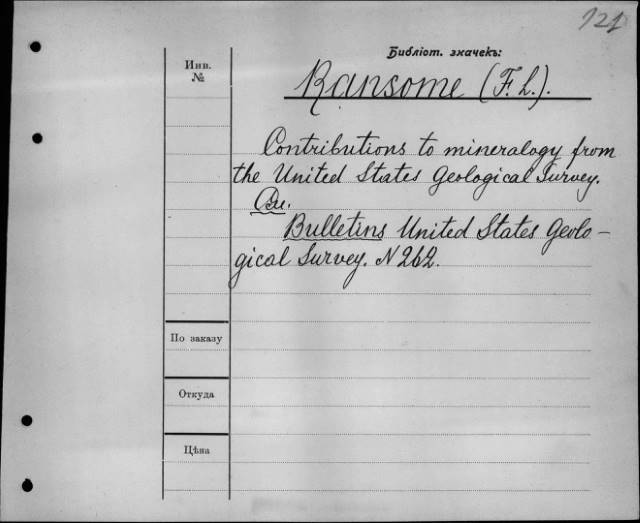 121
Библіот. значекъ:
Инв.
№
Ransome (F. L.).
Contributions to mineralogy from
the United States Geological Survey.
См.
Bulletins United States Geolo-
gical Survey. N 262.
По заказу
Откуда
Цѣна